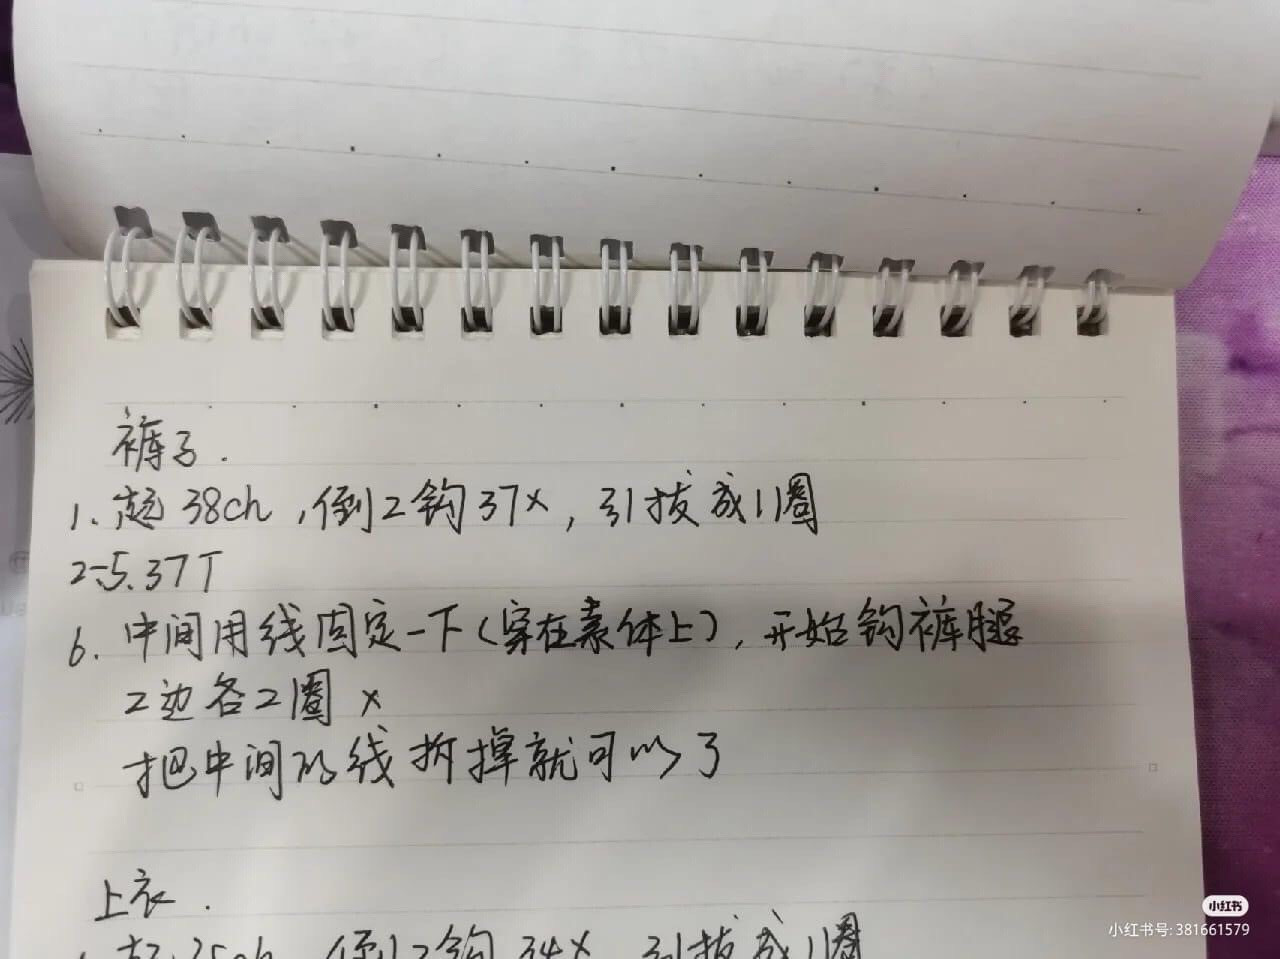 裤子.
1. 起38ch,倒2钩37x,引拔成1圈
2-5.37T
6. 中间用线固定一下(穿在素体上),开始钩裤腿
2边各2圈 x
把中间的线拆掉就可以了
上衣.
1.起35ch,倒2钩34x,引拔成1圈
小红书
小红书号:381661579